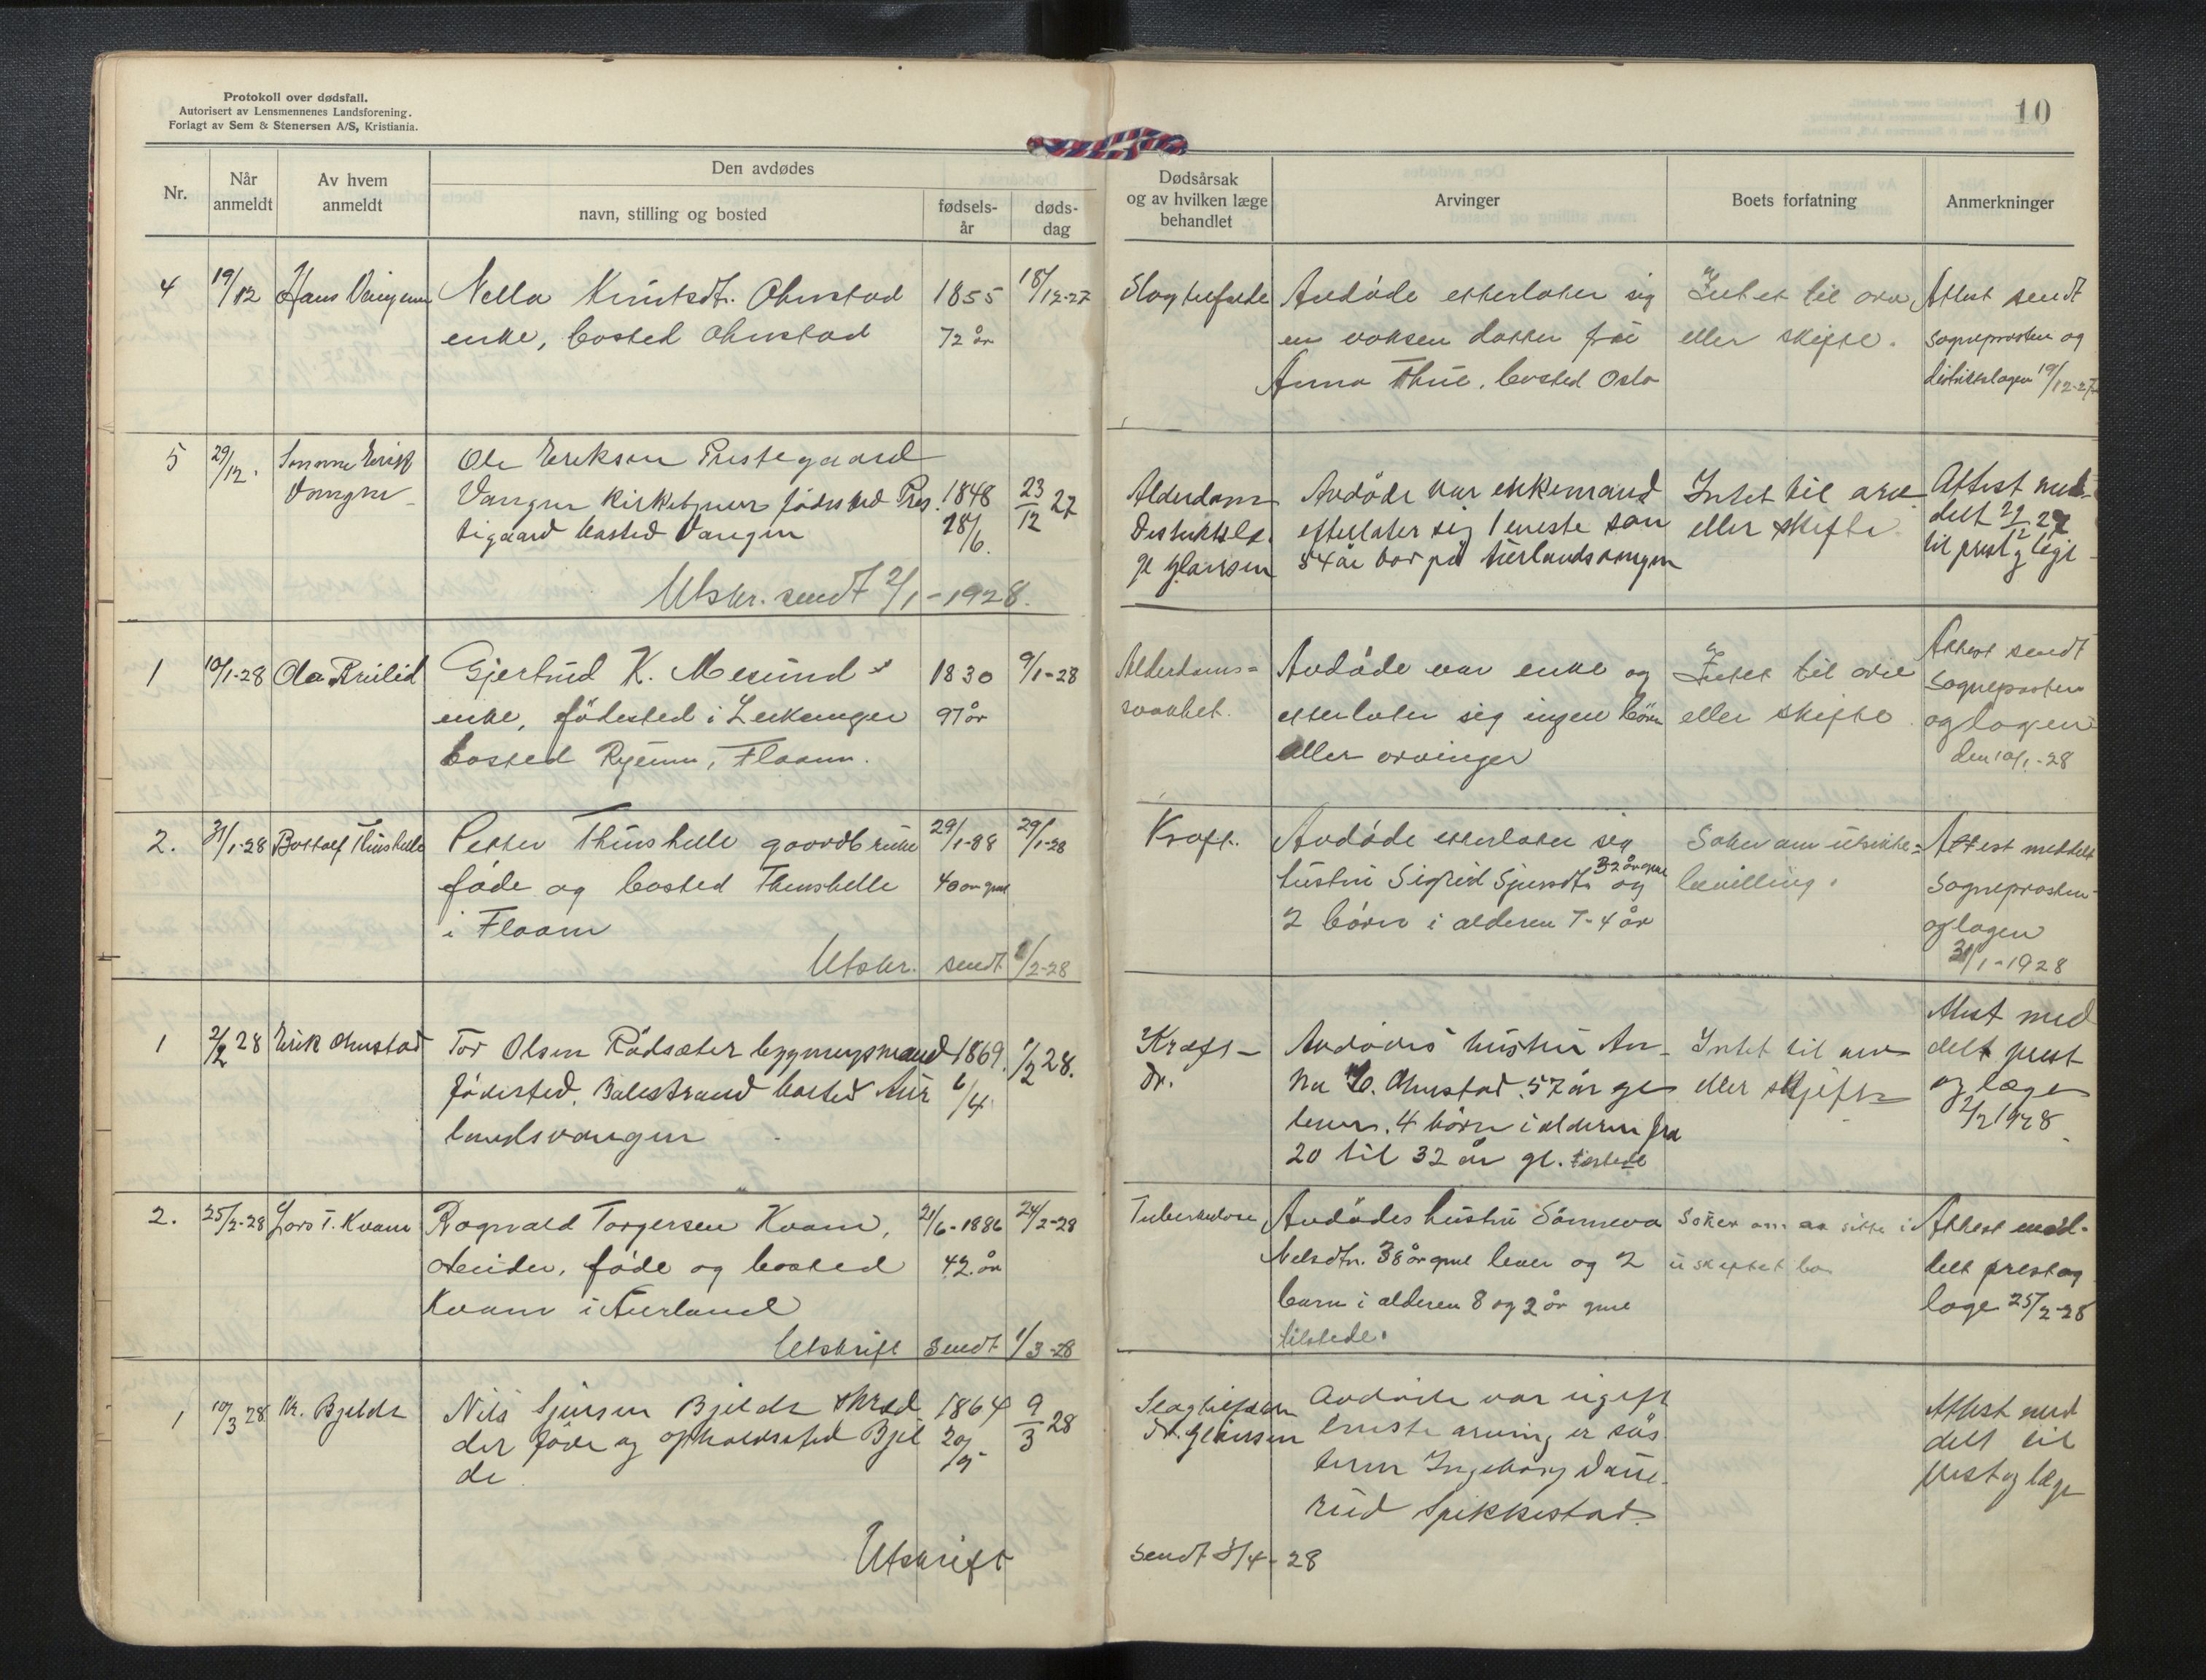 Protokoll over dødsfall.
Autorisert av Lensmennenes Landsforening.
Forlagt av Sem & Stenersen A/S, Kristiania.
10
Nr.
Når
anmeldt
Av hvem
anmeldt
Den avdødes
navn, stilling og bosted
fødsels-
år
døds-
dag
Dødsårsak
og av hvilken læge
behandlet
Arvinger
Boets forfatning
Anmerkninger
4
19/12
Hans Vangen
Nella Knutsdt. Ohnstad
enke, bosted Ohnstad
1855
72 år
18/12-27
Slagtilfælde
Avdøde etterlater sig
en voksen datter frú
Anna Thue, bosted Oslo
Intet til arv
eller skifte.
Attest sendt
sogneprosten og
distriktslægen 19/12-27
5
29/12.
Erik
Vangen
Ole Eriksen Prestegaard
Vangen kirketjener fødested Pres
tigaard bosted Vangen
1848
28/6.
23/12 27
Alderdom
Distriktslæ
ge Clausen
Avdøde var enkemand
efterlater sig 1 eneste søn
54 år bor på Aurlandsvangen
Intet til arv
eller skifte
Attest med-
delt 29/12 27
til prest og læge
Utskr. sendt 2/1-1928.
1
10/1-28
Ola Brulid
Gjertrud K. Melund
enke, fødested i Leikanger
bosted Ryum, Flaam.
1830
97 år
9/1-28
Alderdoms=
svakhet.
Avdøde var enke og
etterlater sig ingen børn
eller arvinger
Intet til arv
eller skifte
Attest sendt
sogneprosten
og lægen
den 10/1-28
2.
31/1-28
Botolf Thunshelle
Petter Thunshelle gaardbruker
føde og bosted Thunshelle
i Flaam
29/1-88
40 år gml
29/1-28
Kræft.
Avdøde etterlater sig
hustru Sigrid Sjursdtr 32 år gml og
2 børn i alderen 7-4 år
Søker om uskifte=
bevilling.
Attest meddelt
sogneprosten
og lægen
31/1-1928
Utskr. sendt 1/2-28
1
2/2 28
Erik Ohnstad
Tor Olsen Rødsæter bygningsmand
fødested. Balestrand bosted Aur
landsvangen
1869.
6/4
1/2 28.
Kræft-
Dr.
Avdødes hustru An-
na O. Ohnstad. 57 år gl
lever. 4 børn i alderen fra
20 til 32 år gl.
Intet til arv
eller skifte
Attest med
delt prest
og læge
2/2 1928
2.
25/2-28
Lars T. Kvam
Ragnvald Torgersen Kvam,
arbeider, føde og bosted
Kvam i Aurland
21/6-1886
42 år
24/2-28
Tuberkulose
Avdødes hustru Sønneva
Nelsdtr. 38 år gml lever og 2
barn i alderen 8 og 2 år gml
tilstede.
Søker om at sitte i
uskiftet bo
Attest med-
delt prest og
læge 25/2-28
Utskrift sendt 1/3-28
1
10/3 28
Kr. Bjelde
Nils Sjursen Bjelde skræd
der føde og opholdssted Bjel
de
1864
20/5
9/3 28
Slagtilfælde
Dr. Clausen
Avdøde var ugift
eneste arving er søs
teren Ingeborg Daue-
rud Spikkestad.
Attest med
delt til
prest og læge
Utskrift sendt 3/4-28